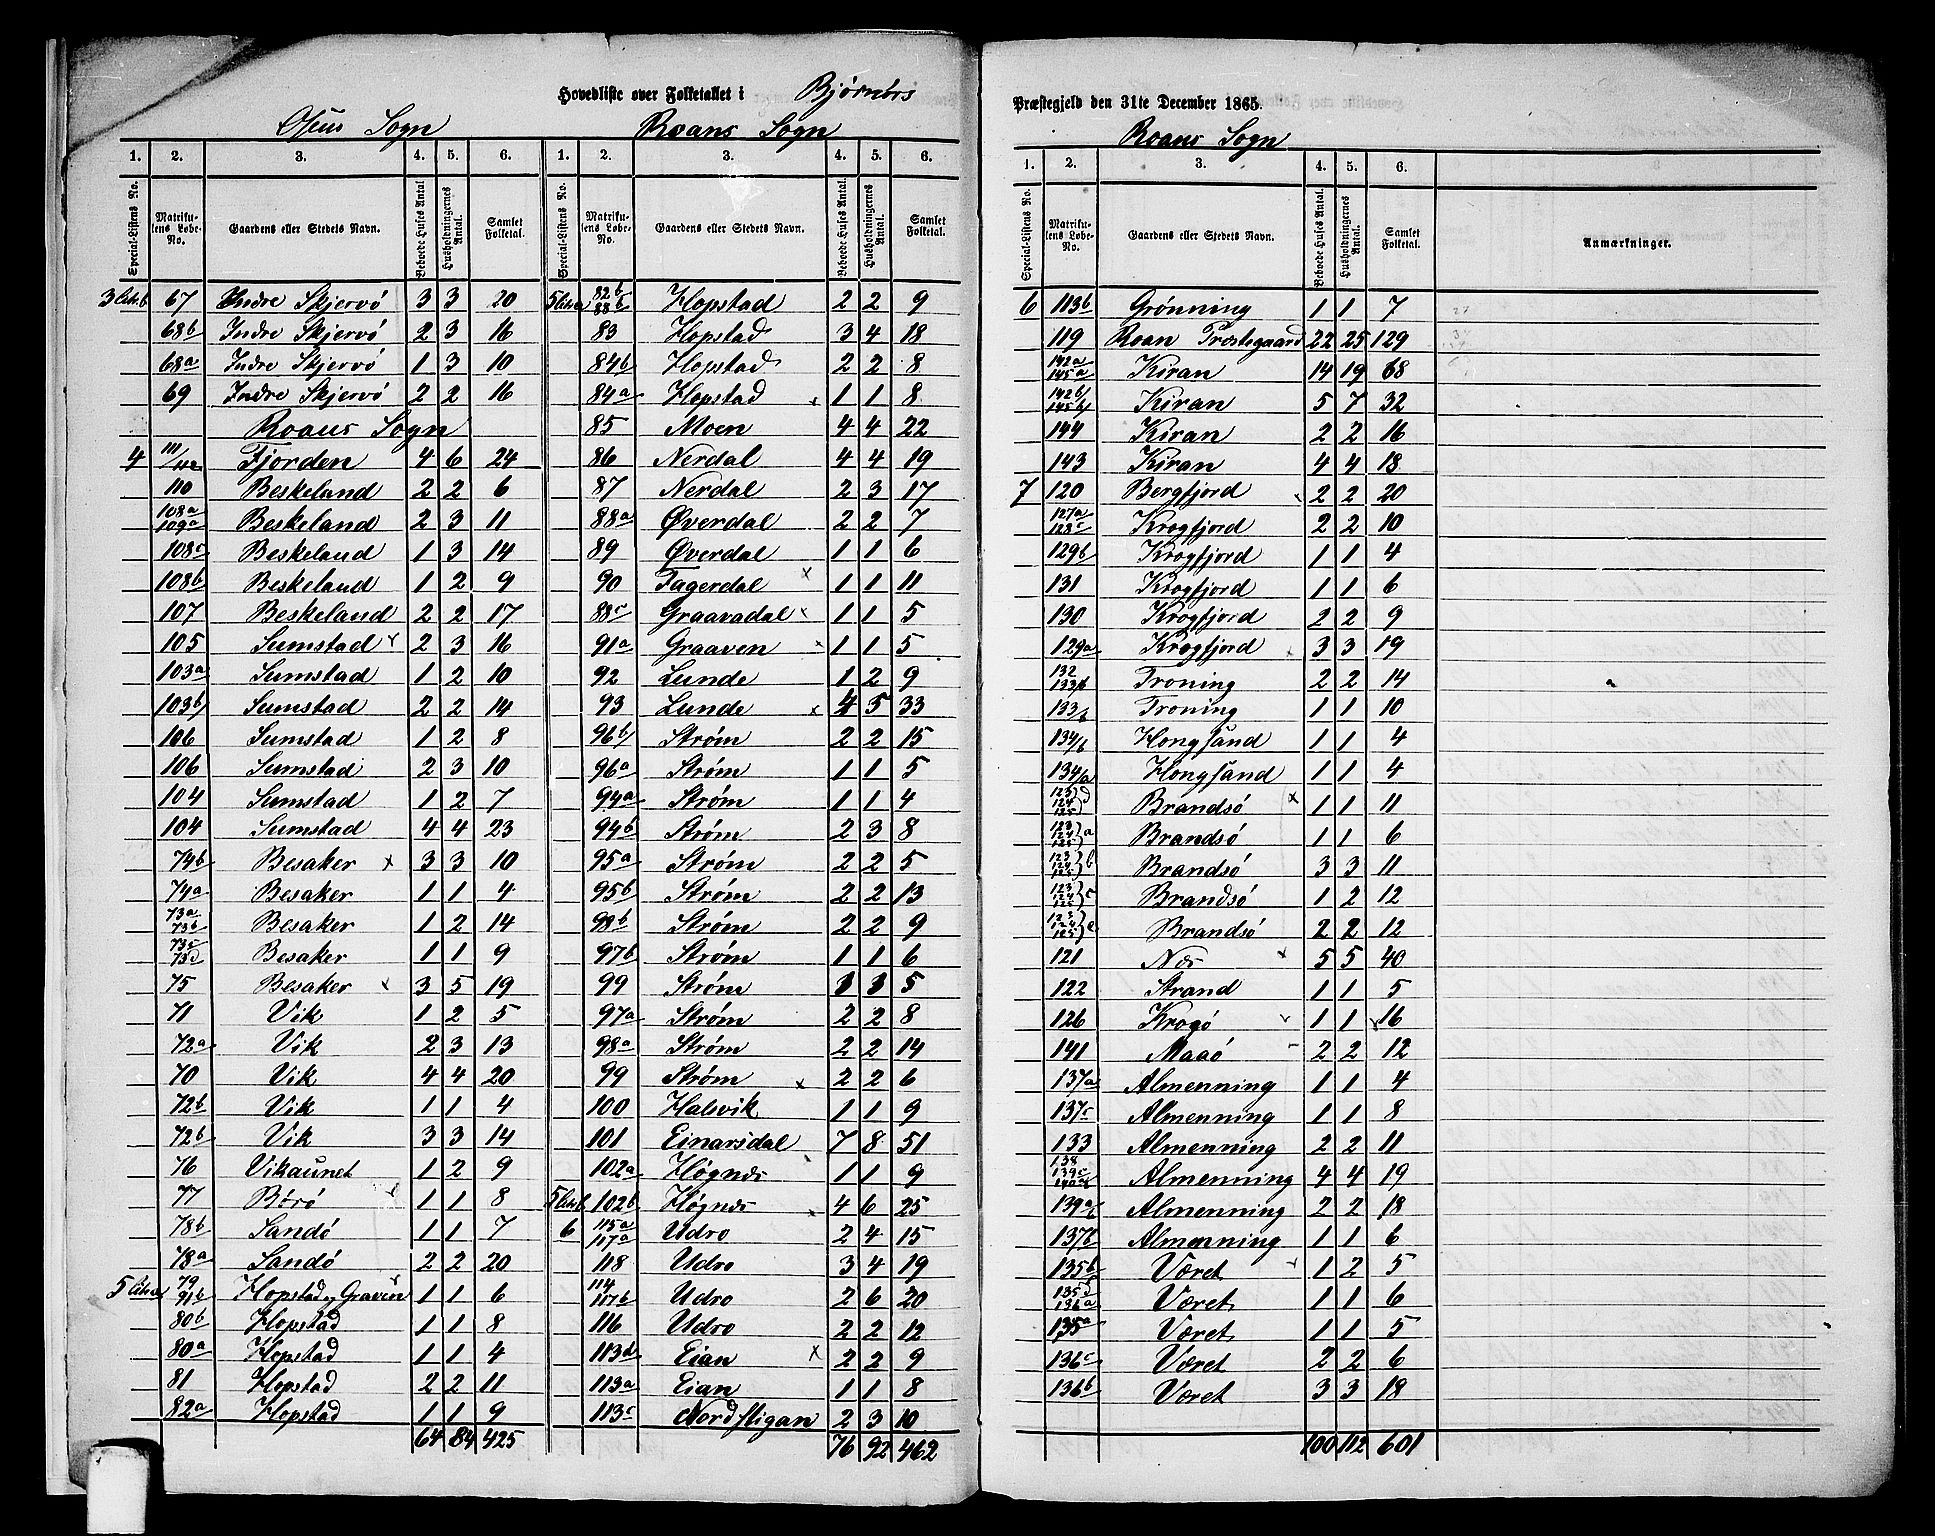 Hovedliste over Folketallet i Bjørnørs
Osens Sogn
Roans Sogn
1. 2. 3. 4. 5. 6. 1. 2. 3. 4. 5. 6.
Special-Listens No. Matrikulens Løbe-No. Gaardens eller Stedets Navn. Beboede Huses Antal Husholdningernes Antal. Samlet Folketal. Special-Listens No. Matrikulens Løbe-No. Gaardens eller Stedets Navn. Beboede Huses Antal. Husholdningernes Antal. Samlet Folketal.
3 Litr. b 67 Indre Skjervø 3 3 20
68b Indre Skjervø 2 3 16
68a Indre Skjervø 1 3 10
69 Indre Skjervø 2 2 16
Roans Sogn
4 111/112 Fjorden 4 6 24
110 Beskeland 2 2 6
108a 109a Beskeland 2 3 11
108c Beskeland 1 3 14
108b Beskeland 1 2 9
107 Beskeland 2 2 17
105 Sumstad 2 3 16
103a Sumstad 1 2 10
103b Sumstad 2 2 14
106 Sumstad 1 2 8
106 Sumstad 2 3 10
104 Sumstad 1 2 7
104 Sumstad 4 4 23
74b Besaker x 3 3 10
74a Besaker 1 1 4
73a 73b Besaker 1 2 14
73c 73d Besaker 1 1 9
75 Besaker x 3 5 19
71 Vik 1 2 5
72a Vik 2 3 13
70 Vik 4 4 20
72b Vik 1 1 4
72b Vik 3 3 14
76 Vikaunet 1 2 9
77 Børø 1 1 8
78b Sandø 1 1 7
78a Sandø 2 2 20
5 Litr. a 79 91b Hopstad og Graven 1 1 6
80b Hopstad 1 1 8
80a Hopstad 1 1 4
81 Hopstad 2 2 11
82a Hopstad 1 1 9
64 84 425
5 Litr. a 82b 88b Hopstad 2 2 9
83 Hopstad 3 4 18
84b Hopstad 2 2 8
84a Hopstad x 1 1 8
85 Moen 4 4 22
86 Nerdal 4 4 19
87 Nerdal 2 3 17
88a Øverdal 2 2 7
89 Øverdal 1 1 6
90 Fagerdal x 1 1 11
88c Graavadal x 1 1 5
91a Graaven x 1 1 5
92 Lunde 1 2 9
93 Lunde x 4 5 33
96b Strøm 2 2 15
96a Strøm 1 1 5
94a Strøm 1 1 4
94b Strøm 2 3 8
95a Strøm 2 2 5
95b Strøm 2 2 13
98b Strøm 2 2 9
97b Strøm 1 1 6
99 Strøm 1 1 5
97a Strøm 2 2 8
98a Strøm 2 2 14
99 Strøm x 2 2 6
100 Halsvik 1 1 9
101 Einarsdal 7 8 51
102a Høgnes 1 1 9
5 Litr. b 102b Høgnes 4 6 25
6 115a 117a Udro 2 4 15
118 Udro 3 4 19
114 117b Udro 2 6 20
116 Udro 2 2 12
113d Eian x 2 2 9
113a Eian 1 1 8
113c Nordstigan 2 3 10
76 92 462
Præstegjeld den 31te December 1865.
Roans Sogn
1. 2. 3. 4. 5. 6. 8
Special-Listens No. Matrikulens Løbe-No. Gaardens eller Stedets Navn. Beboede Huses Antal. Husholdningernes Antal. Samlet Folketal. Anmærkninger.
6 113b Grønning 1 1 7
119 Roan Præstegaard 22 25 129
142a 145a Kiran 14 19 68
142b 145b Kiran 5 7 32
144 Kiran 2 2 16
143 Kiran 4 4 18
7 120 Bergfjord 2 2 20
127a 128c Krogfjord 2 2 10
129b Krogfjord 1 1 4
131 Krogfjord 1 1 6
130 Krogfjord 2 2 9
129a Krogfjord 3 3 19
132 133b Troning 2 2 14
133b Troning 1 1 10
134b Hongsand 1 1 4
134a Hongsand 1 1 4
123 124 125 d Brandsø x 1 1 11
123 124 125 a Brandsø 1 1 6
123 124 125 b Brandsø 3 3 11
123 124 125 c Brandsø 1 2 12
123 124 125 e Brandsø 2 2 12
121 Næs x 5 5 40
122 Strand 1 1 5
126 Krogø 1 1 16
141 Maaø 2 2 12
137a Almenning 1 1 4
137c Almenning 1 1 8
133 Almenning 2 2 11
138 139c 140a Almenning 4 4 19
139a Almenning 2 2 18
137b Almenning 1 1 6
135b Været 1 2 5
135d 136a Været 1 1 6
135a Været 1 1 5
136c Været 2 2 6
136b Været 3 3 18
100 112 601